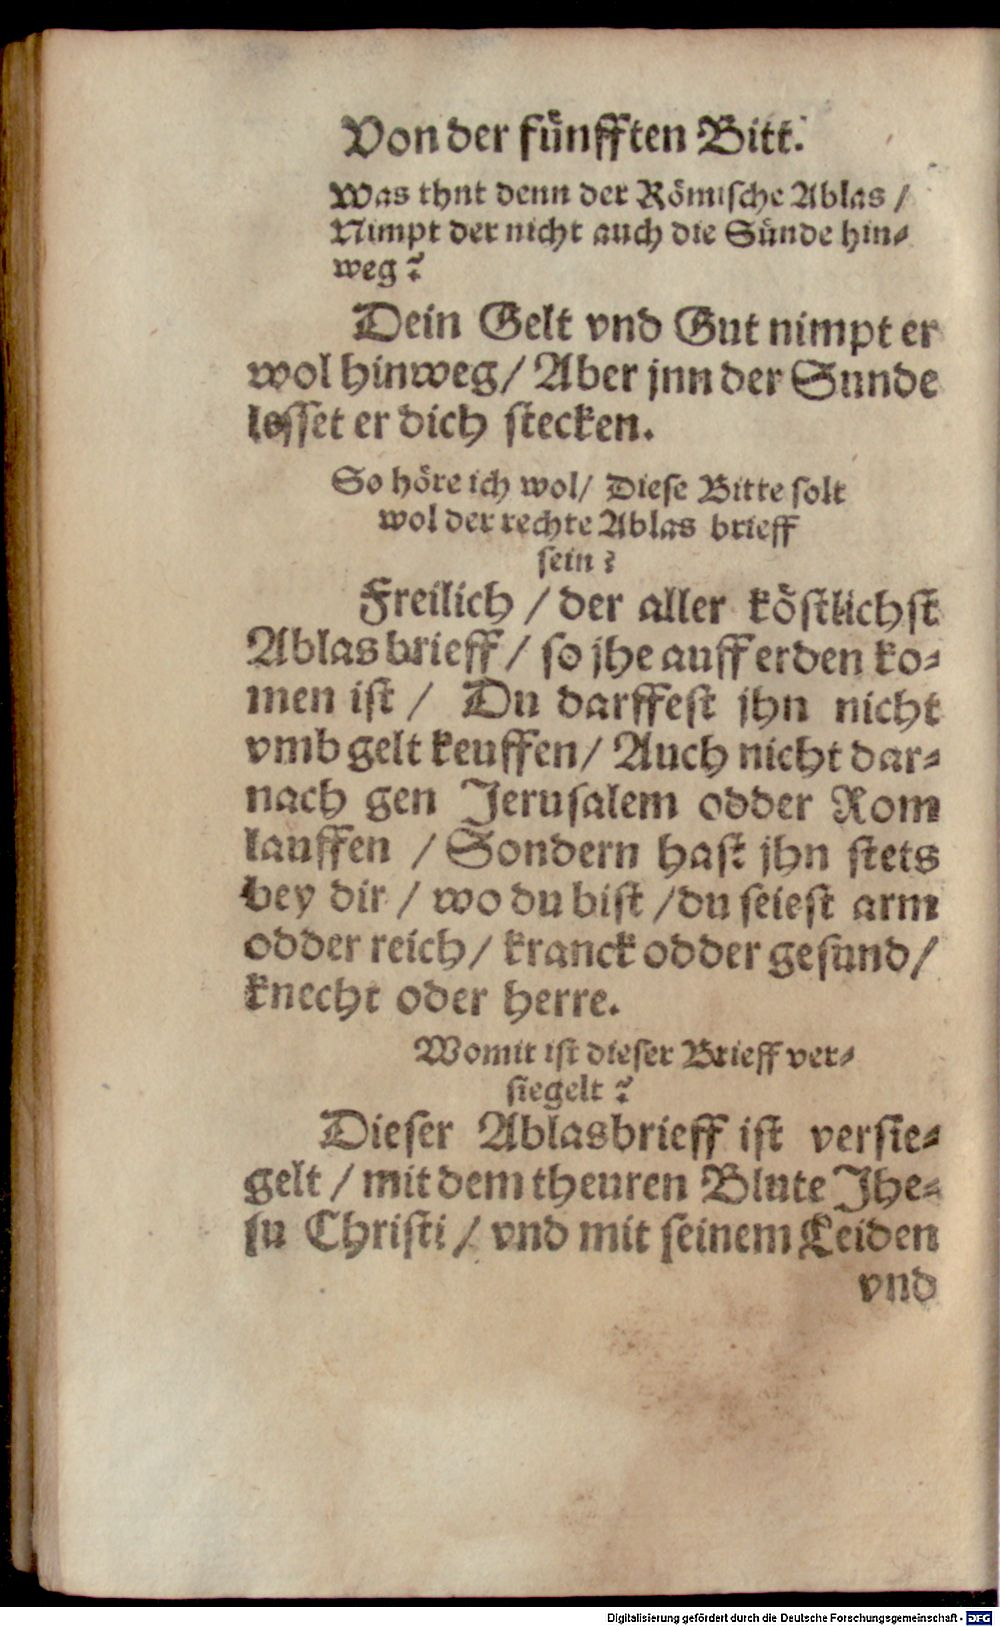 Von der fuͤnfften Bitt.
Was thut denn der Roͤmische Ablas /
Nimpt der nicht auch die Suͤnde hin⸗
weg?
Dein Gelt vnd Gut nimpt er
wol hinweg / Aber jnn der Sunde
lesset er dich stecken.
So hoͤre ich wol / Diese Bitte solt
wol der rechte Ablas brieff
sein?
Freilich / der aller koͤstlichst
Ablasbrieff / so jhe auff erden ko⸗
men ist / Du darffest jhn nicht
vmb gelt keuffen / Auch nicht dar⸗
nach gen Jerusalem odder Rom
lauffen / Sondern hast jhn stets
bey dir / wo du bist / du seiest arm
odder reich / kranck odder gesund /
knecht oder herre.
Womit ist dieser Brieff ver⸗
siegelt?
Dieser Ablasbrieff ist versie⸗
gelt / mit dem theuren Blute Jhe⸗
su Christi / vnd mit seinem Leiden
vnd
Digitalisierung gefördert durch die Deutsche Forschungsgemeinschaft - DFG